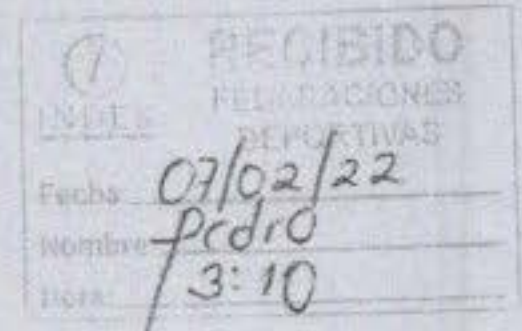 RECIBIDO
INDES
FEDERACIONES
DEPORTIVAS
Fecha 07/02/22
Nombre Pedro
Hora: 3:10